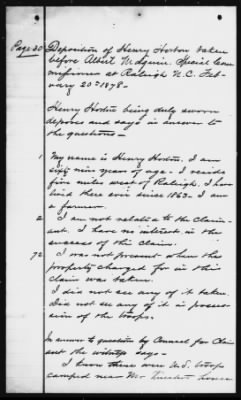 Page 20 Deposition of Henry Horton taken
before Albert Magnin Special Com
missioner at Raleigh N.C. Feb-
ruary 20th 1878-
Henry Horton being duly sworn
deposes and says in answer to
the questions-
1 My name is Henry Horton. I am
sixty nine years of age. I reside
five miles west of Raleigh. I have
lived there ever since 1863. I am
a farmer.
2 I am not related to the Claim-
ant. I have no interest in the
success of this claim.
72 I was not present when the
property charged for in this
claim was taken.
I did not see any of it taken.
Did not see any of it in posses-
sion of the troops.
In answer to question by Counsel for Claim
ant the witness says-
I know there were U.S. troops
camped near Mr house